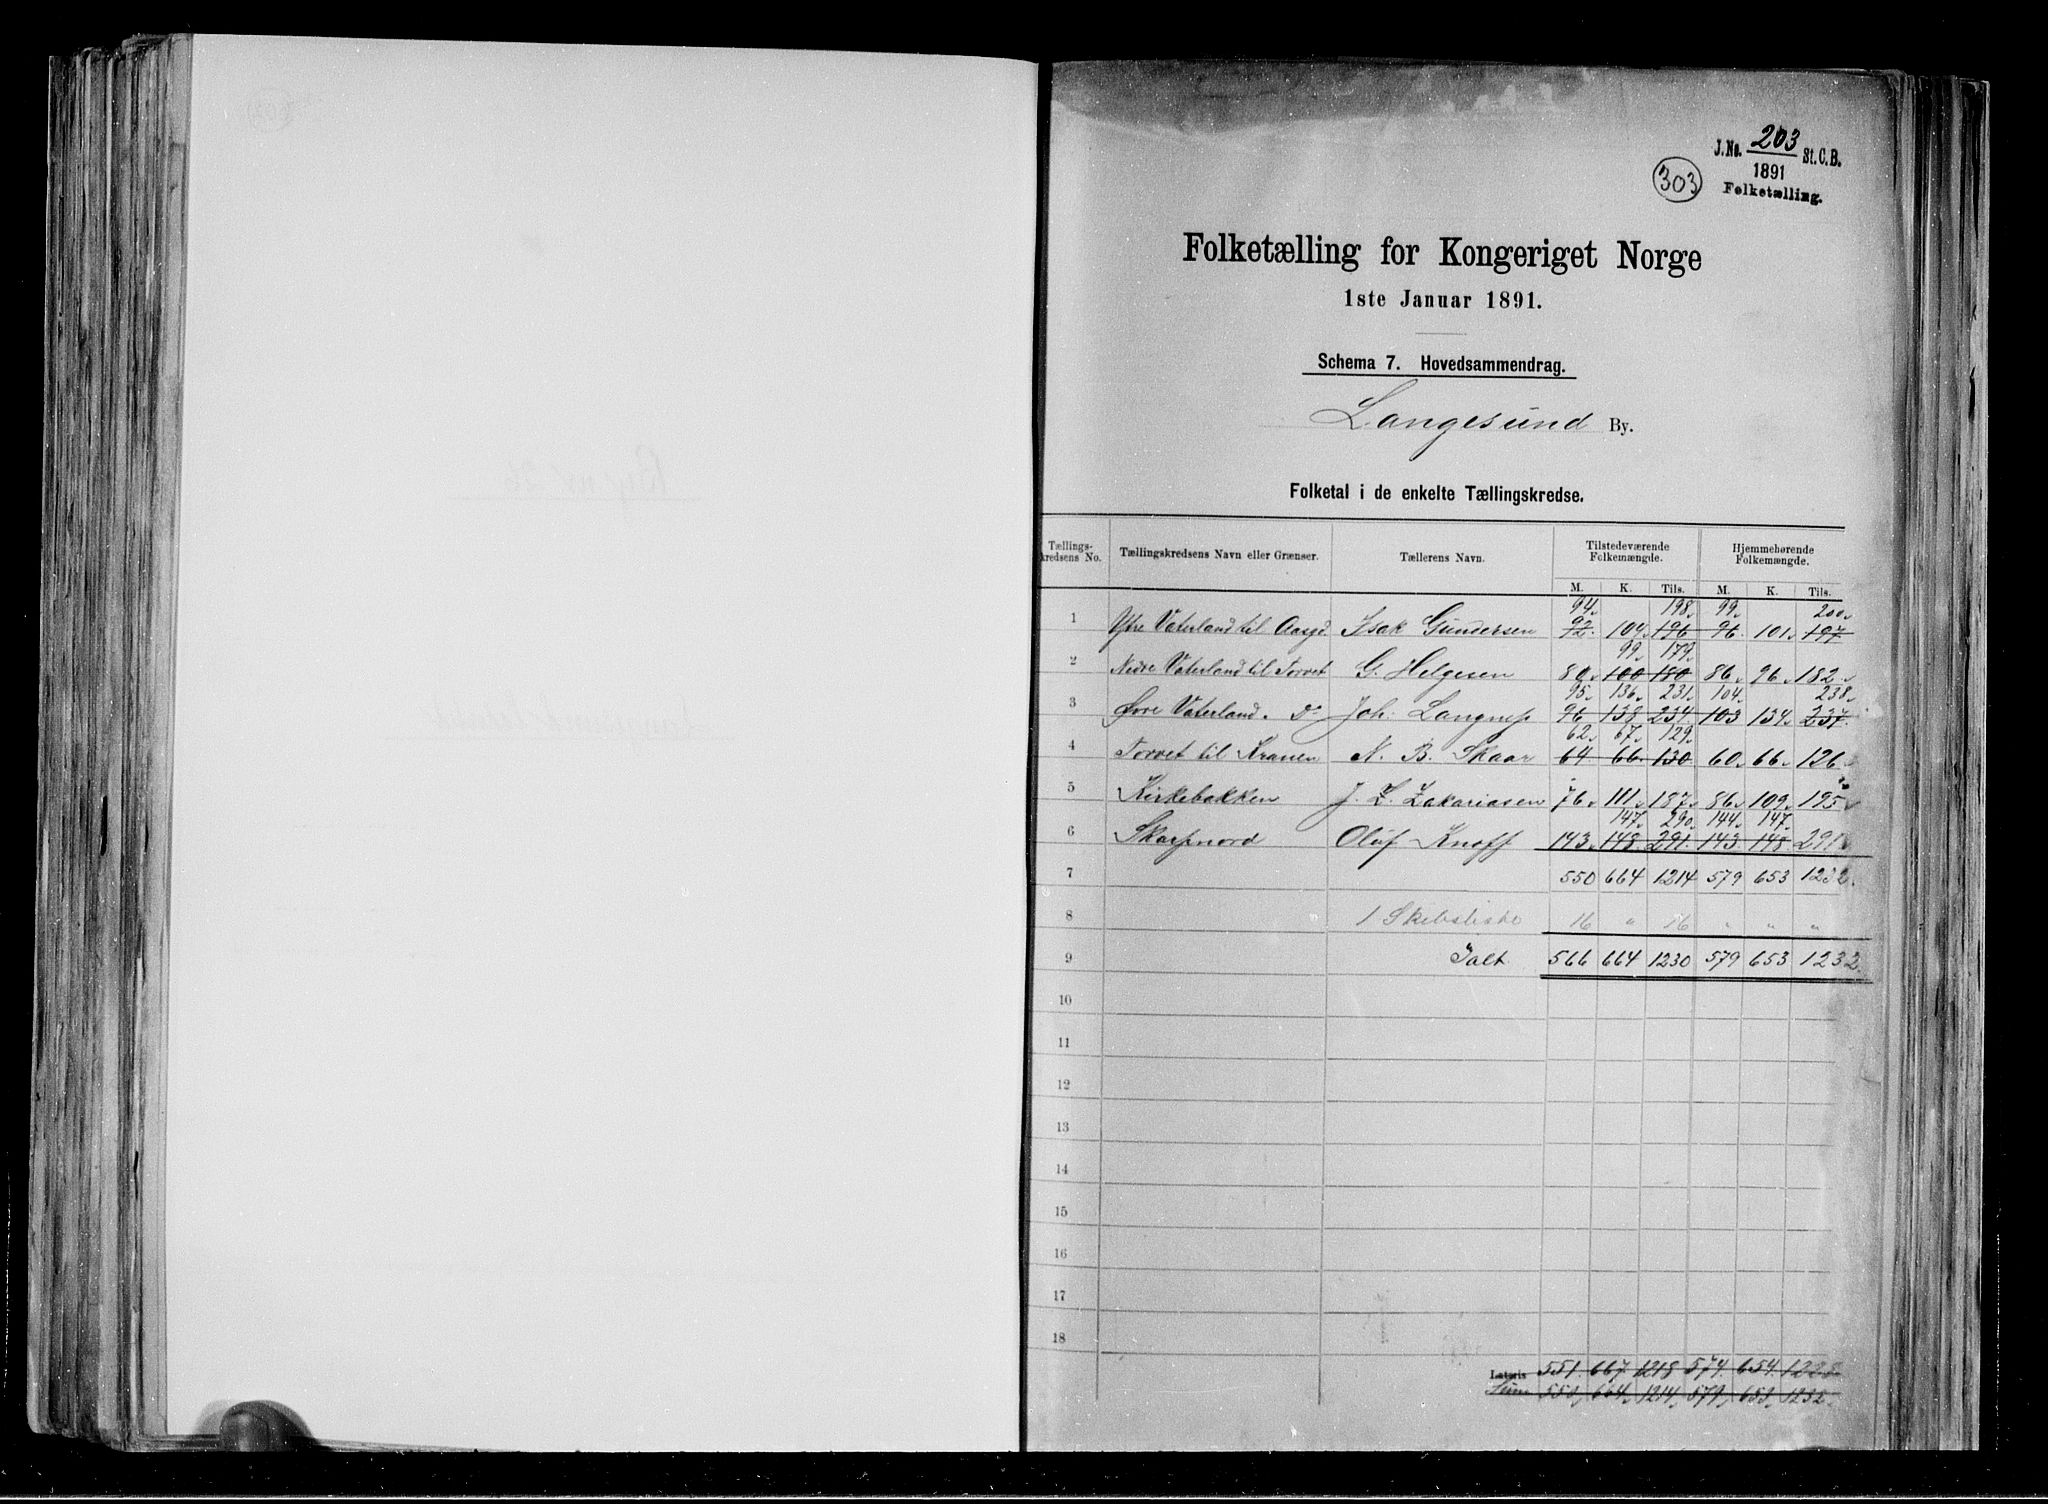 J.No. 203 St.C.B.
1891
Folketælling.
303
Folketælling for Kongeriget Norge
1ste Januar 1891.
Schema 7. Hovedsammendrag.
Langesund By.
Folketal i de enkelte Tællingskredse.
Tællings- Tilstedeværende Hjemmehørende
kredsens No. Tællingskredsens Navn eller Grænser. Tællerens Navn. Folkemængde. Folkemængde.
M. K. Tils. M. K. Tils.
94. 198. 99. 200.
1 Ytre Vaterland til Aasgd. Isak Gundersen 92. 104. 196 96. 101. 197
99. 179.
2 Nedre Vaterland til Torvet G. Helgesen 80. 100 180 86. 96. 182.
95. 136. 231. 104. 238.
3 Øvre Vaterland. Do Joh. 96 138 234 103 134. 237.
62. 67. 129.
4 Torvet til Kranen N. B. Skaar 64 66. 130 60. 66. 126
5 Kirkebakken J. L. Zakariasen 76. 111. 187. 86. 109. 195
147. 290. 144. 147.
6 Skarpnord Oluf Knoff 143. 148. 291. 143. 148. 291
7 550 664 1214 579 653 1232.
8 1 Skibsliste 16 " 16 " " "
9 Ialt 566 664 1230 579 653 1232.
10
11
12
13
14
15
16
17
18
Lateris 551. 667. 1218 574. 654. 1228
Sum 550. 664. 1214. 579. 653. 1232.